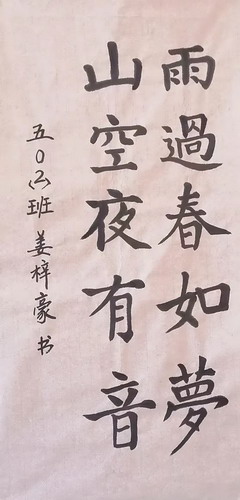 雨過春如夢
山空夜有音
五〇六班 姜梓豪 书